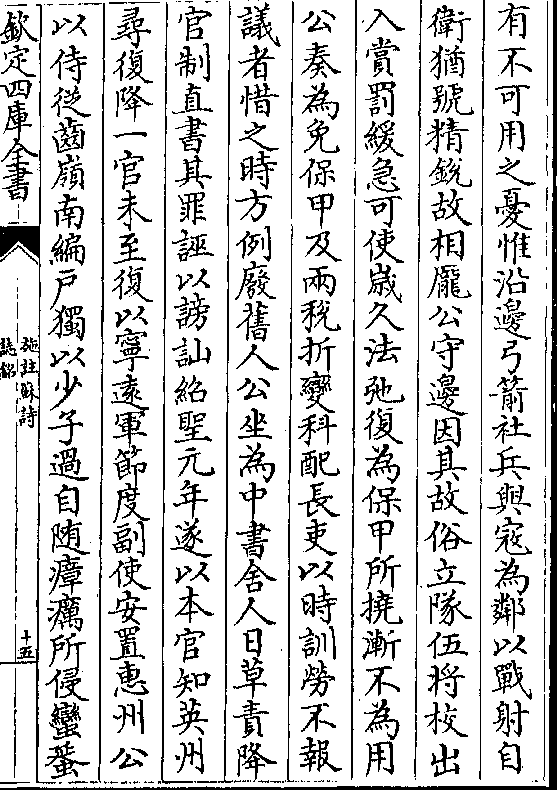 有不可用之憂惟沿邊弓箭社兵與寇為鄰以戰射自
衛猶號精銳故相龎公守邊因其故俗立隊伍將校出
入賞罰緩急可使歲久法弛復為保甲所撓漸不為用
公奏為免保甲及兩稅折變科配長吏以時訓勞不報
議者惜之時方例廢舊人公坐為中書舍人日草責降
官制直書其罪誣以謗訕紹聖元年遂以本官知英州
尋復降一官未至復以寧遠軍節度副使安置惠州公
以侍從齒嶺南編戶獨以少子過自随瘴癘所侵蠻蜑
欽定四庫全書
施註蘇詩
誌銘
十五